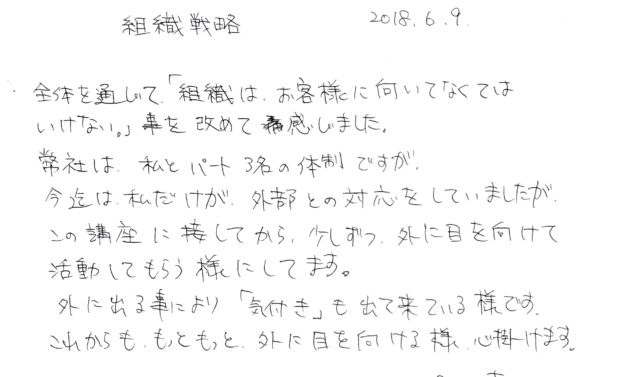 組織戦略
2018.6.9.
全体を通じて、「組織は、お客様に向いてなくては
いけない。」事を改めて感じました。
弊社は、私とパート3名の体制ですが、
今迄は、私だけが、外部との対応をしていましたが、
この講座に接してから、少しずつ、外に目を向けて
活動してもらう様にしてます。
外に出る事により「気付き」も出て来ている様です。
これからも、もっともっと、外に目を向ける様、心掛けます。